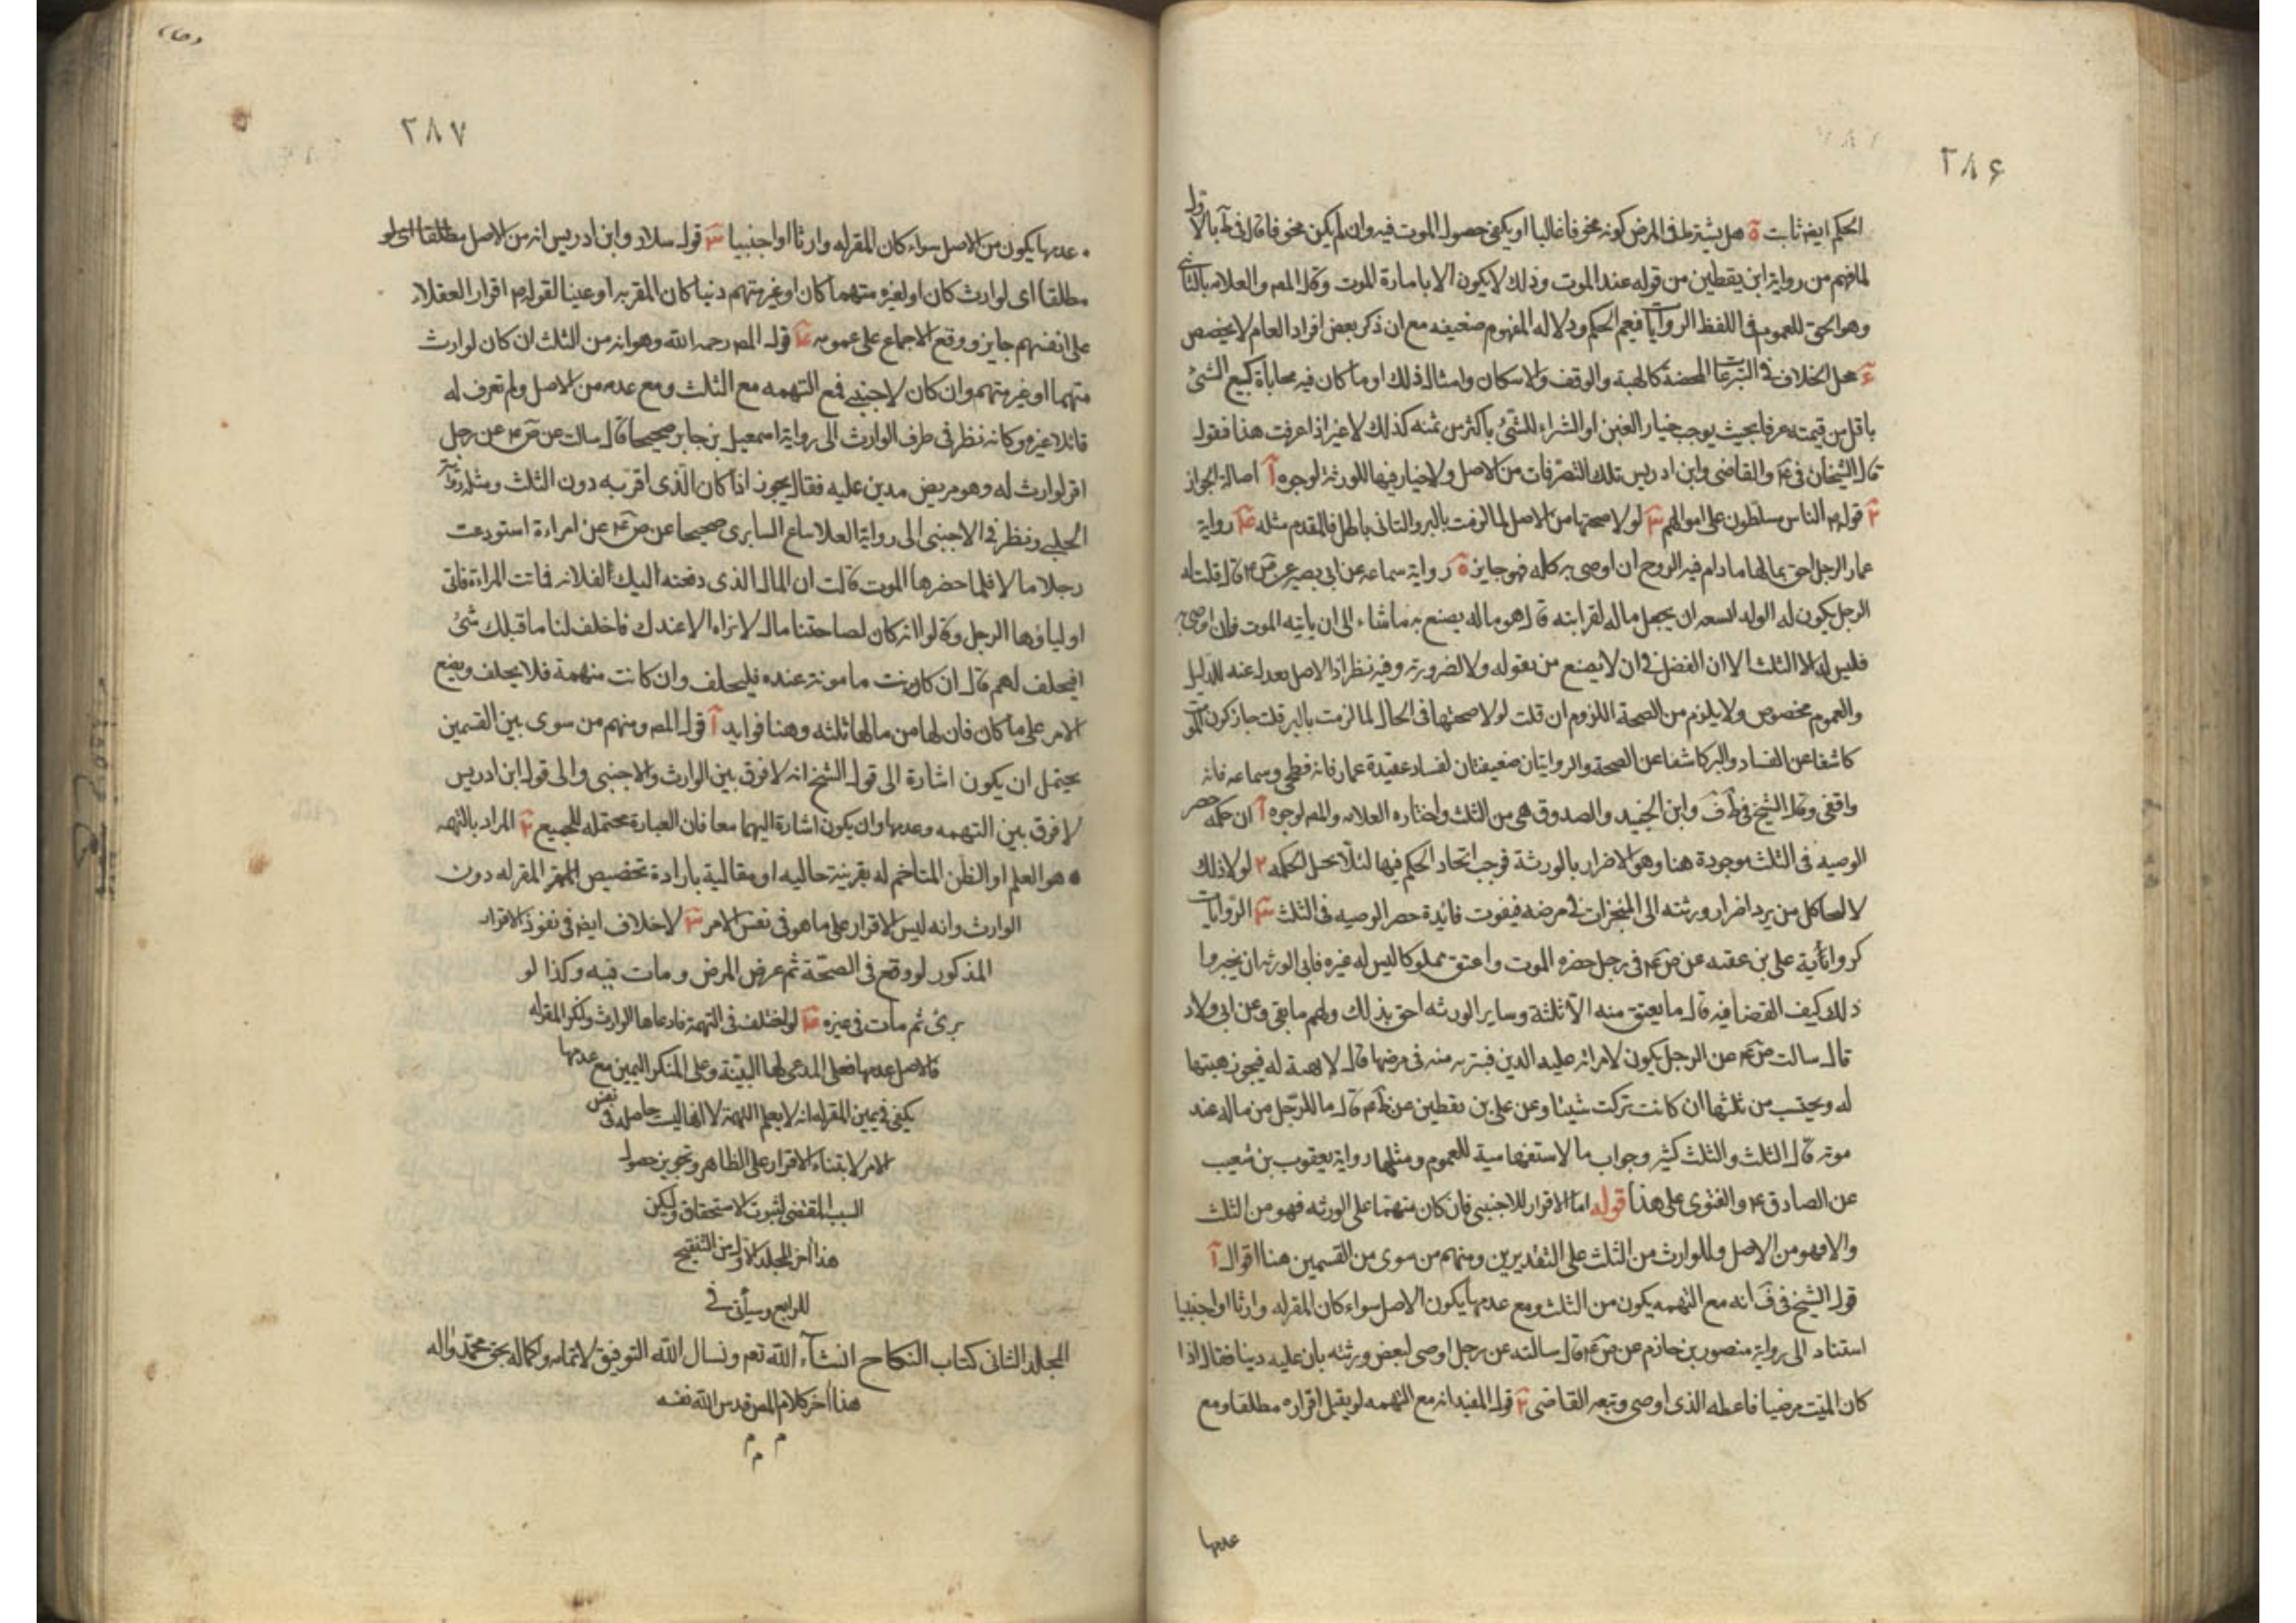 ٢٨۶
الحكم ايضا ثابت ةَ هل يشترط فى المرض كونه مخوفا غالبا او يكفى حصول الموت فيه وان لم يكن مخوفا قال فى ط بالاول
لما فهم من رواية ابن يقطين من قوله عند الموت وذلك لا يكون الا بامارة الموت وقال المص والعلامه بالثانى
وهو الحق للعموم فى اللفظ الروايات فيعم الحكم ودلاله المفهوم ضعيفه مع ان ذكر بعض افراد العام لا يخصص
هل الخلاف فى التبرعات المحضة كالهبة والوقف والاسكان وامثال ذلك او ما كان فيه محاباة كبيع الشئ
باقل من قيمته عرفا بحيث يوجب خيار الغبن او الشراء للشئ باكثر من ثمنه كذلك لا غير اذا عرفت هذا فقول
قال الشيخان فى يه والقاضى وابن ادريس تلك التصرفات من الاصل ولا خيار فيها للورثة لوجوه آ اصالة الجواز
٢ قوله م الناس مسلطون على اموالهم ٣ لو لا صحتها من الاصل لما لزمت بالبر والتالى باطل فالمقدم مثله ٤ رواية
عمار الرجل احق بماله ما دام فيه الروح ان اوصى به كله فهو جايز ةَ رواية سماعه عن ابى بصير عن ص ع قال قلت له
الرجل يكون له الولد السعه ان يجعل ماله لقرابته قال هو ماله يصنع به ما شاء الى ان ياتيه الموت فان اوصى به
فليس له الا الثلث الا ان الفضل فى ان لا يضيع من يعوله ولا لضرورته وفيه نظر اذ الاصل يعدل عنه للدليل
والعموم مخصوص ولا يلزم من الصحة اللزوم ان قلت لو لا صحتها فى الحال لما لزمت بالبر قلت جاز كون الموت
كاشفا عن الفساد والبر كاشفا عن الصحة والروايتان ضعيفتان لفساد عقيدة عمار فانه فطحى وسماعه فانه
واقفى وقال الشيخ فى ط ف وابن الجنيد والصدوق هى من الثلث واختاره العلامه والمص لوجوه آ ان حكمه حصر
الوصيه فى الثلث موجودة هنا وهو الاضرار بالورثة فوجب اتحاد الحكم فيها لئلا يحل الحكمه ٢ لو لا ذلك
لالتجا كل من يريد اضرار ورثته الى المنجزات فى مرضه فيفوت فائدة حصر الوصيه فى الثلث ٣ الروايات
كرواية على بن عقبه عن ص ع فى رجل حضره الموت واعتق مملوكا ليس له غيره فابى الورثه ان يجيزوا
ذلك كيف القضا فيه قال ما يعتق منه الا ثلثة وساير الورثه احق بذلك ولهم ما بقى وعن ابى ولاد
قال سالت ص ع عن الرجل يكون لامراته عليه الدين فتبريه منه فى مرضها قال لا هبة له فيجوز هبتها
له ويحتسب من ثلثها ان كانت تركت شيئا وعن على بن يقطين عن ظم قال ما للرجل من ماله عند
موته قال الثلث والثلث كثير وجواب ما الاستفهامية للعموم ومثلها رواية يعقوب بن شعيب
عن الصادق ع والفتوى على هذا قوله اما الاقرار للاجنبى فان كان متهما على الورثه فهو من الثلث
والا فهو من الاصل وللوارث من الثلث على التقديرين ومنهم من سوى من القسمين هنا اقوال آ
قول الشيخ فى ف انه مع التهمه يكون من الثلث ومع عدمها يكون الاصل سواء كان المقر له وارثا او اجنبيا
استناد الى رواية منصور بن حازم عن ص ع قال سالته عن رجل اوصى لبعض ورثته بان عليه دينا فقال اذا
كان الميت مرضيا فاعطه الذى اوصى وتبعه القاضى ٢ قول المفيد انه مع التهمه لو يقبل اقراره مطلقا ومع
عدمها
٢٨٧
عدمها يكون من الاصل سواء كان المقر له وارثا او اجنبيا ٣ قول سلار وابن ادريس انه من الاصل مطلقا اى لو
مطلقا اى لوارث كان او لغيره متهما كان او غير متهم دينا كان المقر به او عينا لقوله م اقرار العقلاء
على انفسهم جايز ووقع الاجماع على عمومه ٤ قول المص رحمه الله وهو انه من الثلث ان كان لوارث
متهما او غير متهم وان كان لاجنبى فمع التهمه مع الثلث ومع عدمه من الاصل ولم تعرف له
قائلا غيره وكانه نظر فى طرف الوارث الى رواية اسمعيل بن جابر صحيحا قال سالت عن ص ع عن رجل
اقر لوارث له وهو مريض مدين عليه فقال يجوز اذا كان الذى اقر به دون الثلث ومثله رواية
الحلبى ونظر فى الاجنبى الى رواية العلا بياع السابرى صحيحا عن ص ع عن امراءة استودعت
رجلا مالا فلما حضرها الموت قالت ان المال الذى دفعته اليك الفلانه فماتت المراءة فاتى
اولياؤها الرجل وقالوا انه كان لصاحبتنا مال لا نراه الا عندك فاحلف لنا ما قبلك شئ
افيحلف لهم قال ان كانت مامونة عنده فليحلف وان كانت متهمة فلا يحلف ويضع
الامر على ما كان فان لها من مالها ثلثه وهنا فوايد آ قول المص ومنهم من سوى بين القسمين
يحتمل ان يكون اشارة الى قول الشيخ انه لا فرق بين الوارث والاجنبى والى قول ابن ادريس
لا فرق بين التهمه وعدمها وان يكون اشارة اليهما معا فان العبارة محتمله للجميع ٢ المراد بالتهمه
هو العلم او الظن المتاخم له بقرينة حاليه او مقالية بارادة تخصيص المقر له دون
الوارث وانه ليس الاقرار على ما هو فى نفس الامر ٣ لا خلاف ايضا فى نفوذ الاقرار
المذكور لو وقع فى الصحة ثم عرض المرض ومات فيه وكذا لو
برئ ثم مات فى غيره ٤ لو اختلف فى التهمة فادعاها الوارث وانكر المقر له
فالاصل عدمها فعلى المدعى لها البينة وعلى المنكر اليمين مع عدمها
يكفى فى يمين المقر له انه لا يعلم التهمة لا انها ليست حاصله فى نفس
الامر لابتناء الاقرار على الظاهر وتجويز حصول
السبب المقتضى لثبوت الاستحقاق وليكن
هذا اخر المجلد الاول من التنقيح
للرابع وسيأتى فى
المجلد الثانى كتاب النكاح انشآء الله تعم ونسال الله التوفيق لاتمامه واكماله بحق محمد واله
هذا اخر كلام المص قدس الله نفسه
م م م